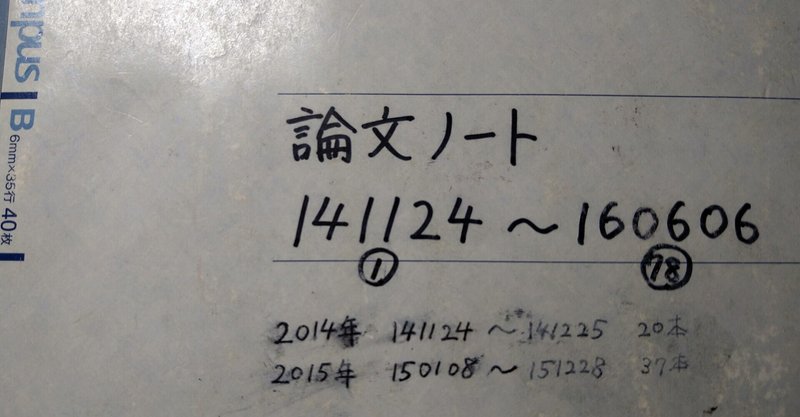 mpus
B
6mm×35行 40枚
論文ノート
141124 〜 160606
① 78
2014年 141124 〜 141225 20本
2015年 150108 〜 151228 37本